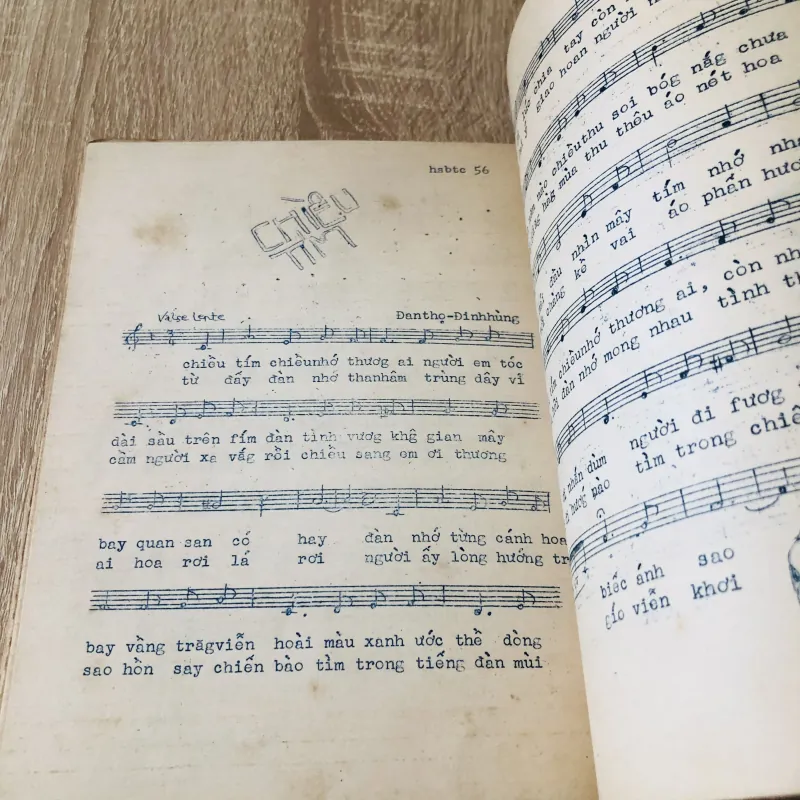 hsbtc 56
CHIỀU
TÍM
Valse lente
Danthọ-Đinhhùng
chiều tím chiềunhớ thươg ai người em tóc
từ đấy đàn nhớ thanhâm trùng dây vĩ
dài sầu trên fím đàn tình vươg khĝ gian mây
cầm người xa vắg rồi chiều sang em ơi thương
bay quan san có hay đàn nhớ từng cánh hoa
ai hoa rơi lá rơi người ấy lòng hướng
bay vầng trăgviễn hoài màu xanh ước thề dòng
sao hồn say chiến bào tìm trong tiếng đàn mùi
chia tay còn
giao hoan người
nào chiềuthu soi bóg nắg chưa
mùa thu thêu áo nét hoa
đầu nhìn mây tím nhớ
kề vai áo phấn hươ
chiềunhớ thương ai, còn
đàn nhớ mong nhau tình
nhắn dùm người đi fươg
hướg nào tìm trong
biếc ánh sao
gió viễn khơi